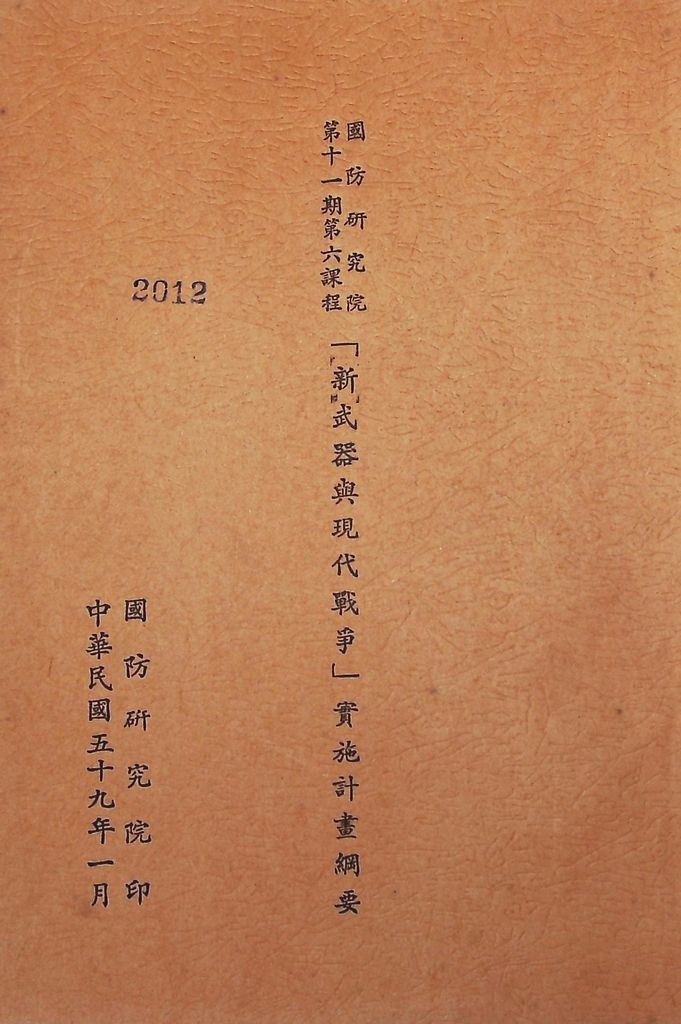 國防研究院
第十一期第六課程
「新武器與現代戰爭」實施計畫綱要
2012
國防研究院印
中華民國五十九年一月